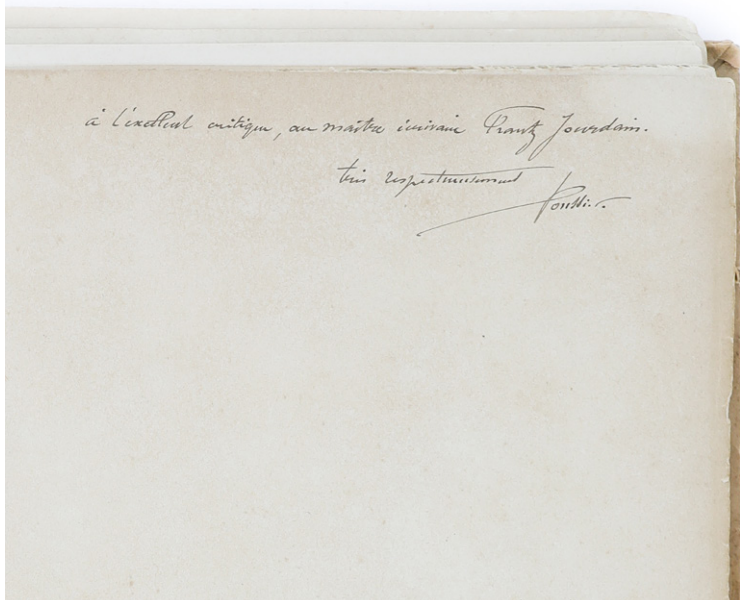 à l'excellent critique, au maître écrivain Frantz Jourdain.
très respectueusement